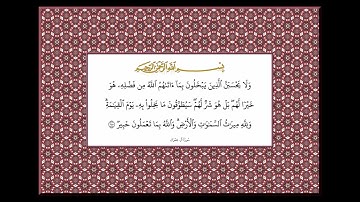 بِسْمِ ٱللَّهِ ٱلرَّحْمَٰنِ ٱلرَّحِيمِ
وَلَا يَحْسَبَنَّ ٱلَّذِينَ يَبْخَلُونَ بِمَآ ءَاتَىٰهُمُ ٱللَّهُ مِن فَضْلِهِۦ هُوَ
خَيْرًا لَّهُم بَلْ هُوَ شَرٌّ لَّهُمْ سَيُطَوَّقُونَ مَا بَخِلُوا۟ بِهِۦ يَوْمَ ٱلْقِيَٰمَةِ
وَلِلَّهِ مِيرَٰثُ ٱلسَّمَٰوَٰتِ وَٱلْأَرْضِ وَٱللَّهُ بِمَا تَعْمَلُونَ خَبِيرٌ
سورة آل عمران